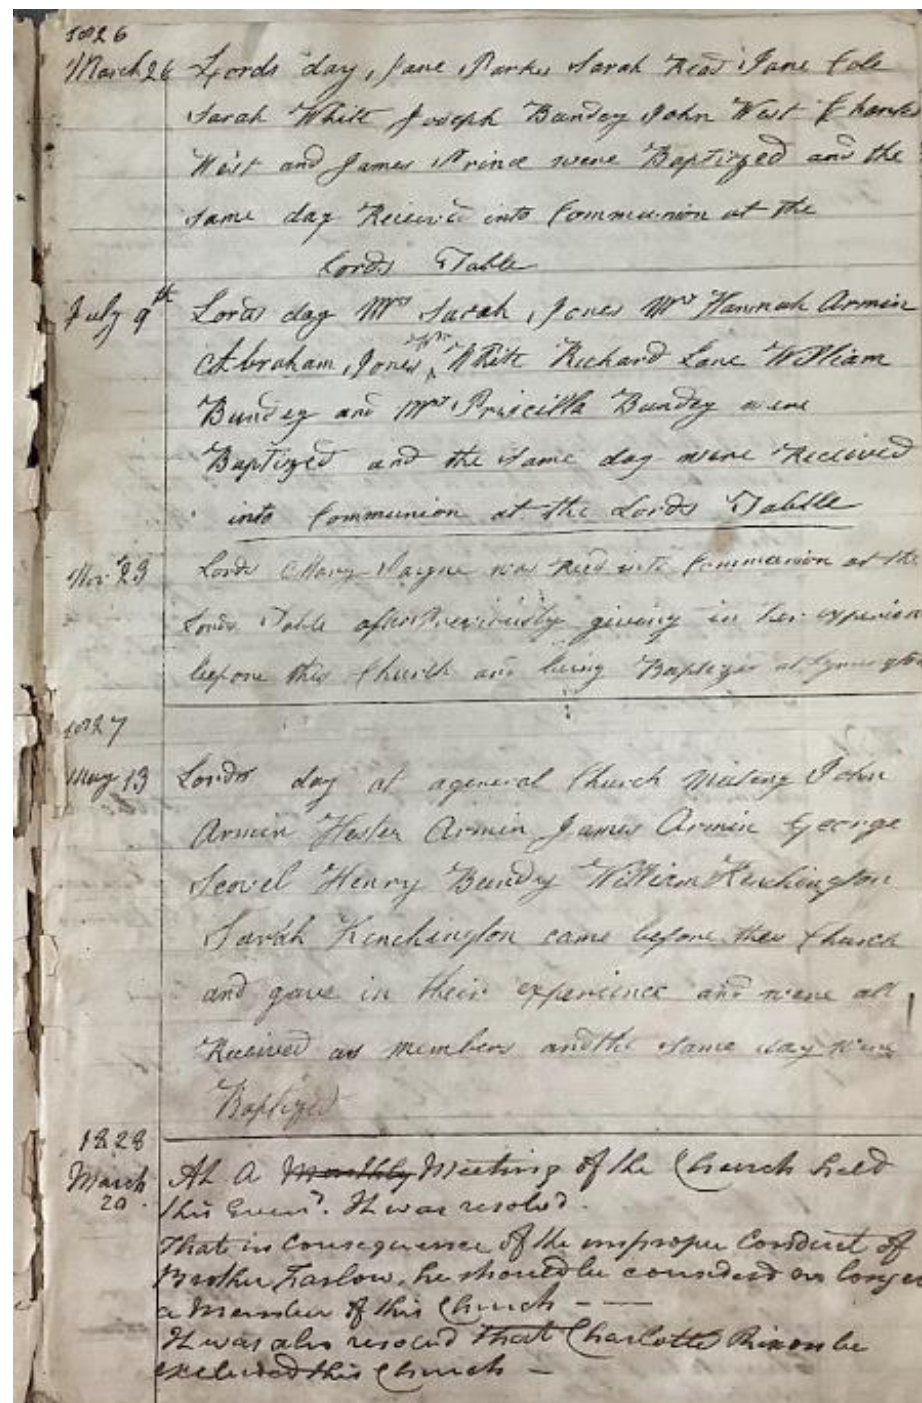 1826
March 26 Lords day, Jane Parker Sarah Read Jane Cole
Sarah White Joseph Bundey John West Charles
West and James Prince were Baptized and the
same day Received into Communion at the
Lords Table
July 9th Lords day Mrs Sarah Jones Mrs Hannah Armin
Abraham Jones Wm White Richard Lane William
Bundey and Mrs Priscilla Bundey were
Baptized and the same day were Received
into Communion at the Lords Tablle
Nov 23 Lords Mary was Recd into Communion at the
Lords Table after Previously giving in her
before this Church and being Baptized at
1827
May 13 Lords day at a general Church Meeting John
Armin Hester Armin James Armin George
Scovel Henry Bundy William Kenchington
Sarah Kenchington came before the Church
and gave in their experience and were all
Received as members and the same day were
Baptized
1828
March 20. At a Monthly Meeting of the Church held
this Evend. It was resolved.
That in consequence of the improper Conduct of
Brother Farlow, he should be considerd no longer
a Member of this Church - —
It was also resolved that Charlotte be
excluded this Church —